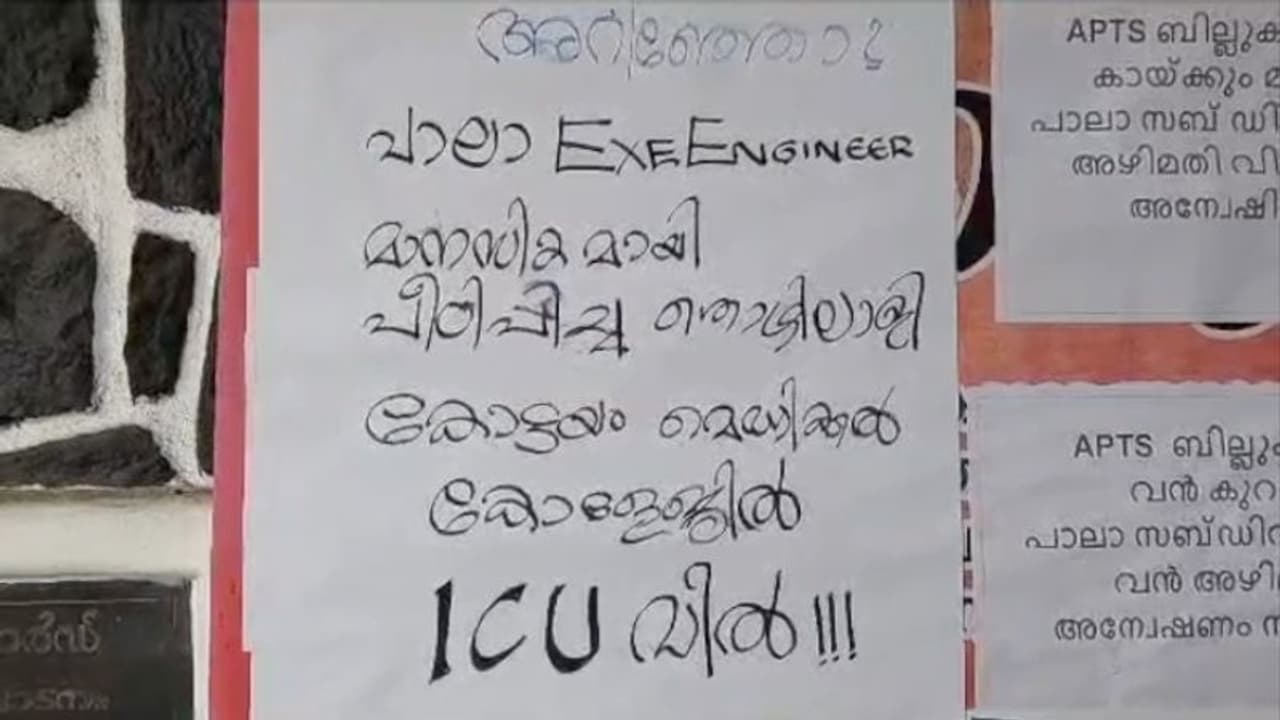 അറിഞ്ഞോ?
പാലാ EXE ENGINEER
മാനസിക മായി
പീഠിപ്പിച്ച തൊഴിലാളി
കോട്ടയം മെഡിക്കൽ
കോളേജിൽ
ICU വിൽ !!!
APTS ബില്ലുക
കായ്ക്കും മ
പാലാ സബ് ഡി
അഴിമതി വി
അന്വേഷി
APTS ബില്ലും
വൻ കുറ
പാലാ സബ്ഡിവ
വൻ അഴി
അന്വേഷണം ന